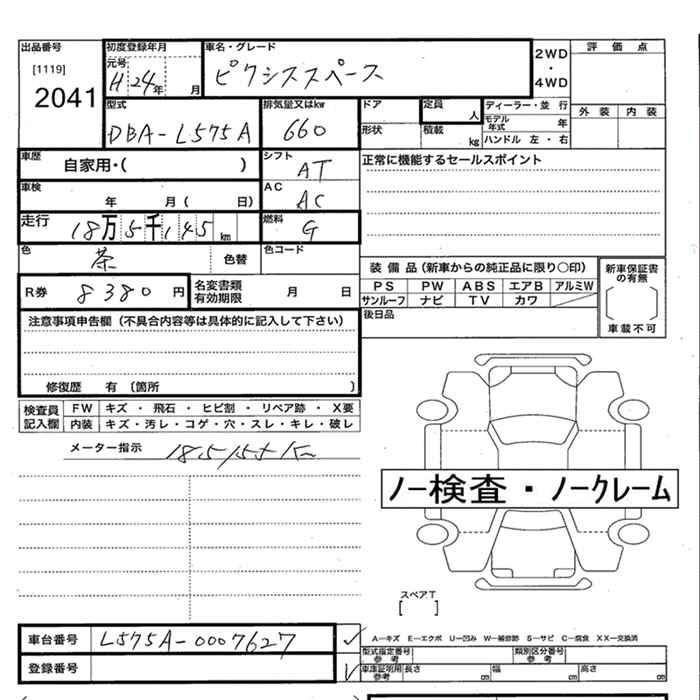 出品番号 初度登録年月 車名・グレード 2WD・4WD 評価点
[1119] 元号 H24年 月 ピクシススペース
2041 外装 内装
型式 排気量又はkw ドア 定員 人 ディーラー・並行
DBA-L575A 660 形状 積載 kg モデル年式 年
ハンドル 左・右
車歴 自家用・( ) シフト AT 正常に機能するセールスポイント
車検 年 月( 日) AC AC
走行 18万5千145km 燃料 G
色 茶 色替 色コード
装備品(新車からの純正品に限り○印) 新車保証書の有無
R券 8380円 名変書類有効期限 月 日 PS PW ABS エアB アルミW
サンルーフ ナビ TV カワ
注意事項申告欄(不具合内容等は具体的に記入して下さい) 後日品 車載不可
修復歴 有〔箇所 〕
検査員記入欄 FW キズ・飛石・ヒビ割・リペア跡・X要
内装 キズ・汚レ・コゲ・穴・スレ・キレ・破レ
メーター指示
ノー検査・ノークレーム
スペアT
[ ]
車台番号 L575A-0007627 A―キズ E―エクボ U―凹み W―補修跡 S―サビ C―腐食 XX―交換済
型式指定番号 参考 類別区分番号 参考
登録番号 車庫証明用 参考 長さ cm 幅 cm 高さ cm